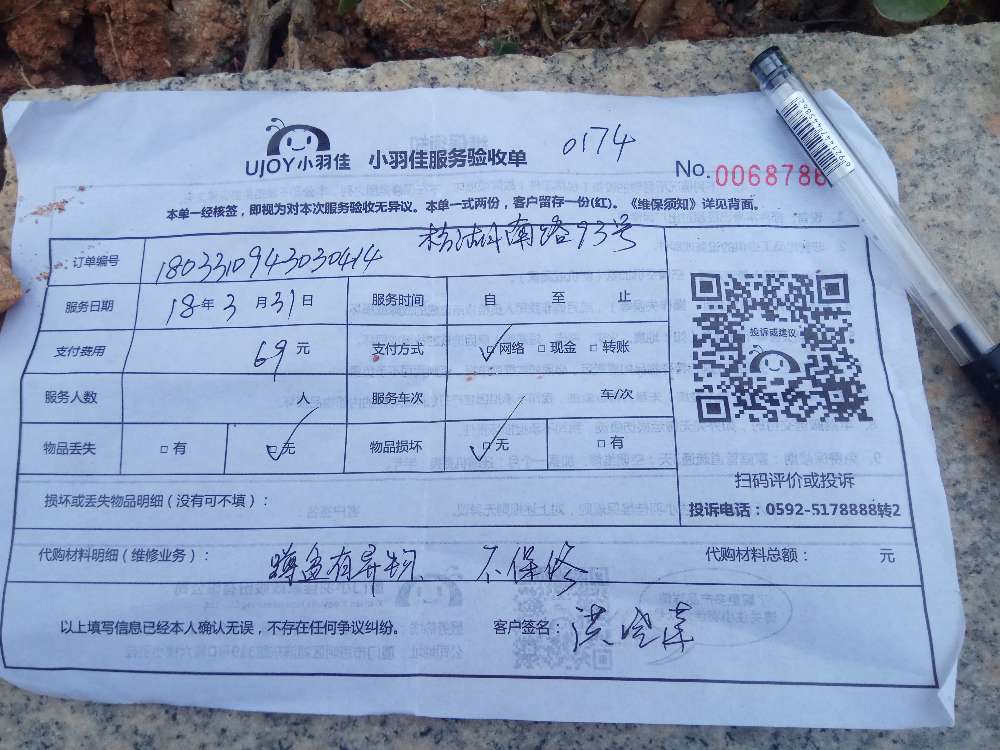 UJOY小羽佳 小羽佳服务验收单 0174
No. 0068786
本单一经核签，即视为对本次服务验收无异议。本单一式两份，客户留存一份(红)。《维保须知》详见背面。
南路93号
订单编号 1803310943030414
服务日期 18年3月31日 服务时间 自 至 止
支付费用 69元 支付方式 □网络 □现金 □转账
服务人数 人 服务车次 车/次
物品丢失 □有 □无 物品损坏 □无 □有
投诉或建议
扫码评价或投诉
投诉电话：0592-5178888转2
损坏或丢失物品明细（没有可不填）：
代购材料明细（维修业务）： 蹲盆有异物 不保修 代购材料总额： 元
以上填写信息已经本人确认无误，不存在任何争议纠纷。 客户签名：洪
6921447443862